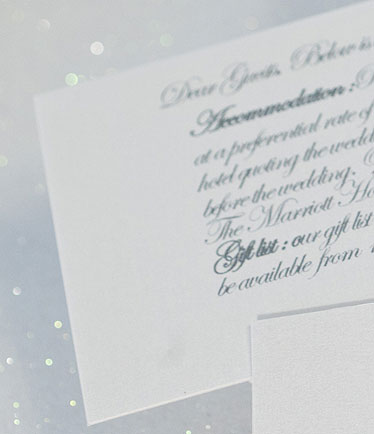 Dear Guests, Below is
Accommodation :
at a preferential rate of
hotel quoting the wedd
before the wedding.
The Marriott Ho
Gift list : our gift list
be available from